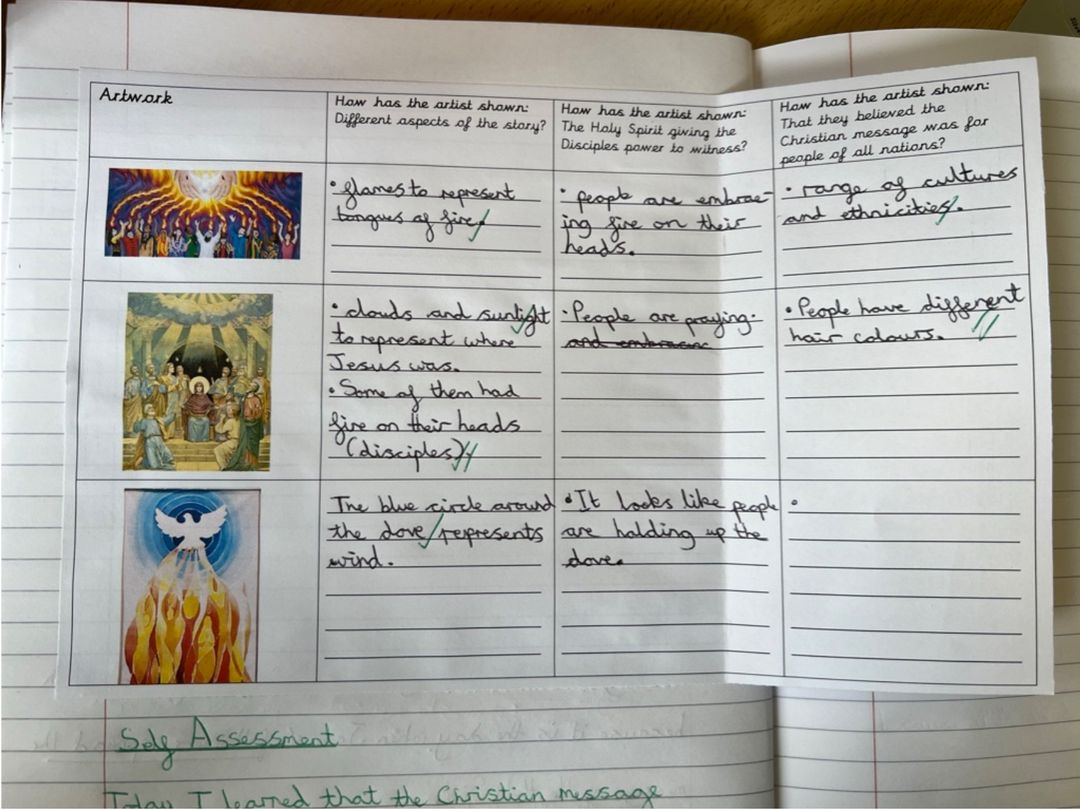 Artwork
How has the artist shown:
Different aspects of the story?
How has the artist shown:
The Holy Spirit giving the
Disciples power to witness?
How has the artist shown:
That they believed the
Christian message was for
people of all nations?
• flames to represent
tongues of fire.
• people are embrac-
ing fire on their
heads.
• range of cultures
and ethnicities.
• clouds and sunlight
to represent where
Jesus was.
• Some of them had
fire on their heads
(disciples)
• People are praying.
• People have different
hair colours.
The blue circle around
the dove represents
wind.
• It looks like people
are holding up the
dove.
•
Self Assessment
Today I learned that the Christian message